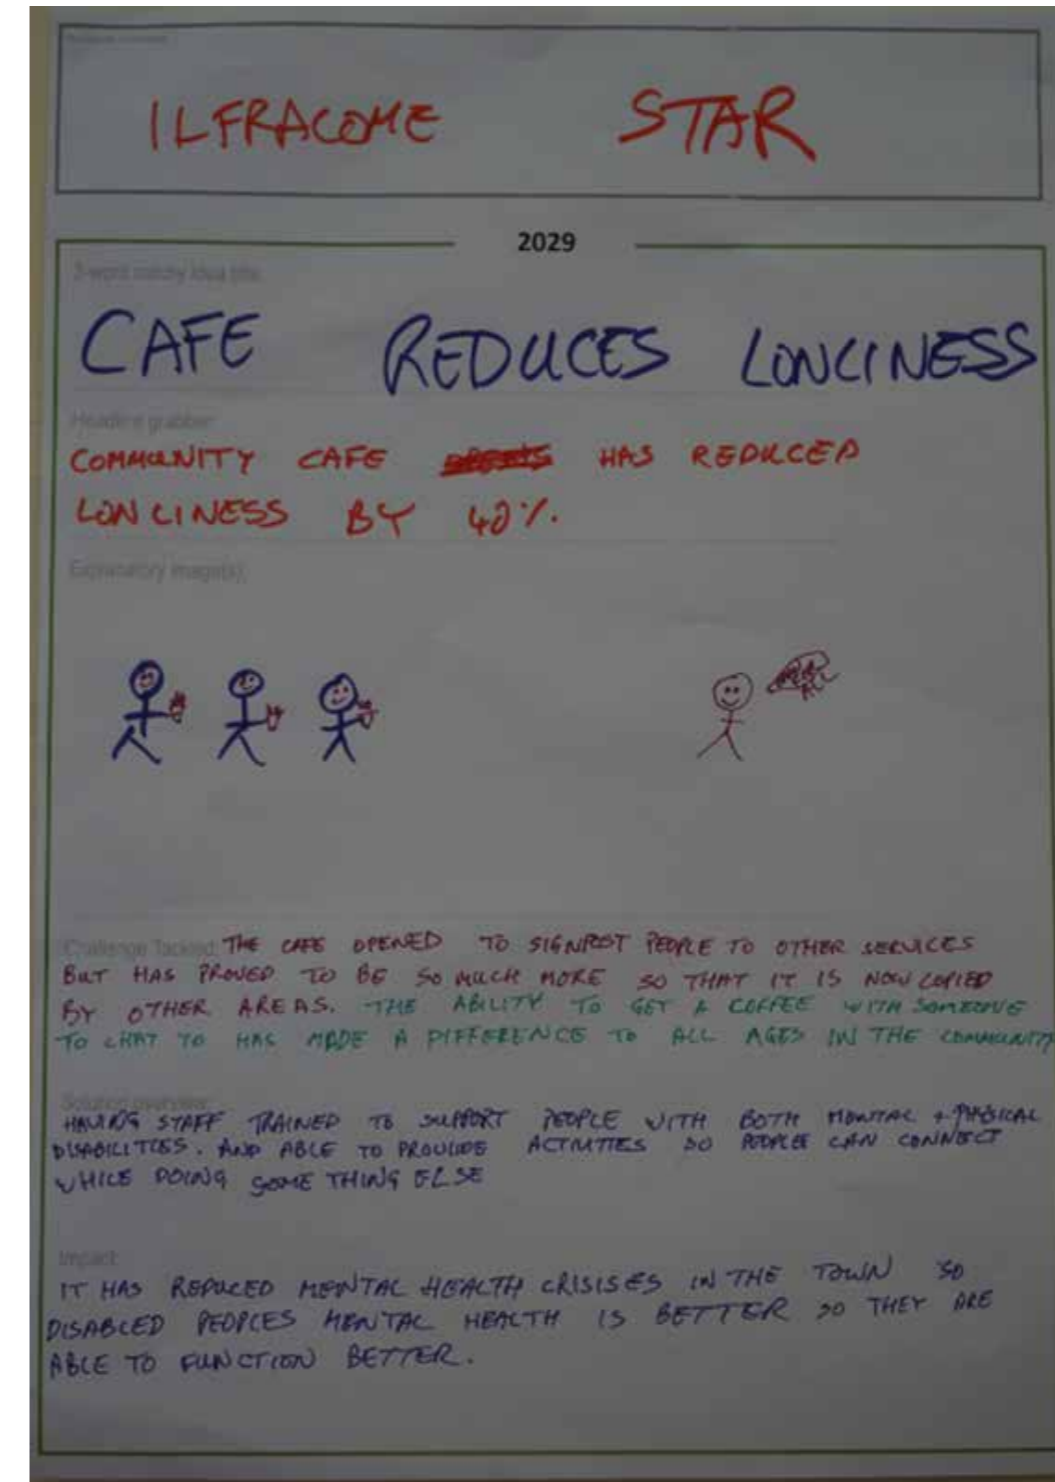 ILFRACOME STAR
2029
3-word catchy idea title:
CAFE REDUCES LONLINESS
Headline grabber:
COMMUNITY CAFE HAS REDUCED
LONLINESS BY 40%.
Explanatory image(s):
Challenge Tackled: THE CAFE OPENED TO SIGNPOST PEOPLE TO OTHER SERVICES
BUT HAS PROVED TO BE SO MUCH MORE SO THAT IT IS NOW COPIED
BY OTHER AREAS. THE ABILITY TO GET A COFFEE WITH SOMEONE
TO CHAT TO HAS MADE A DIFFERENCE TO ALL AGES IN THE COMMUNITY
Solution overview:
HAVING STAFF TRAINED TO SUPPORT PEOPLE WITH BOTH MENTAL + PHYSICAL
DISABILITIES. AND ABLE TO PROVIDE ACTIVITIES SO PEOPLE CAN CONNECT
WHILE DOING SOME THING ELSE
Impact:
IT HAS REDUCED MENTAL HEALTH CRISISES IN THE TOWN SO
DISABLED PEOPLES MENTAL HEALTH IS BETTER SO THEY ARE
ABLE TO FUNCTION BETTER.